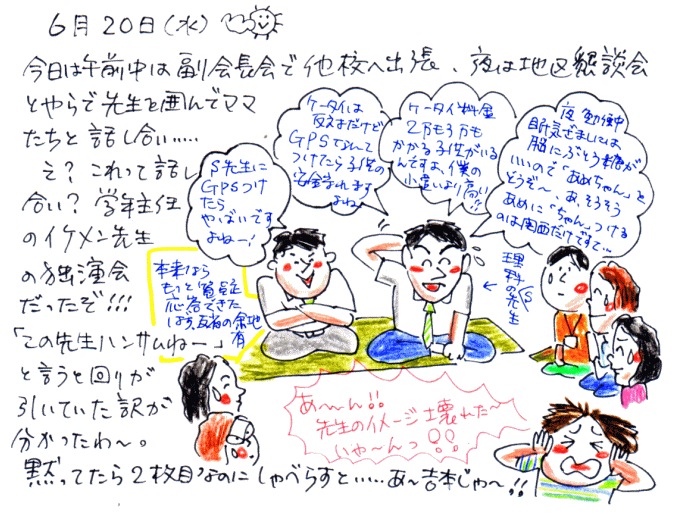 6月20日(水)
今日は午前中は副会長会で他校へ出張、夜は地区懇談会
とやらで先生を囲んでママ
たちと話し合い……
え？これって話し
合い？学年主任
のイケメン先生
の独演会
だったぞ!!!
「この先生ハンサムねー」
と言うと回りが
引いていた訳が
分かったわ〜。
黙ってたら2枚目なのにしゃべらすと……あ〜吉本じゃ〜!!
S先生に
GPSつけ
たら
やばいです
よねー!
ケータイは
反対だけど
GPSなんて
つけたら子供の
安全守れます
よね〜
ケータイ料金
2万も3万も
かかる子供がいる
んですよ、僕の
小遣いより高い!!
夜勉強中
眠気ざましには
脳にぶどう糖が
いいので「あめちゃん」を
どうぞ〜あ、そうそう
あめに「ちゃん」つける
のは関西だけですで…
本来なら
もっと質疑
応答できた
はず、反省の余地
有
理科の先生
(S)
あ〜〜ん!!
先生のイメージ壊れた〜
いや〜んっ!!